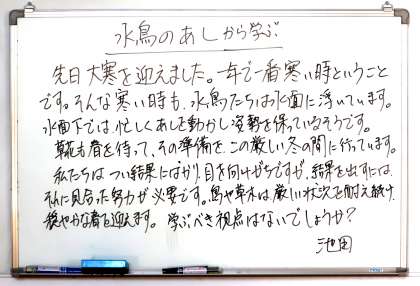 水鳥のあしから学ぶ
先日大寒を迎えました。一年で一番寒い時ということ
です。そんな寒い時も、水鳥たちは水面に浮いています。
水面下では、忙しくあしを動かし姿勢を保っているそうです。
草花も春を待って、その準備を、この厳しい冬の間に行っています。
私たちは つい結果にばかり、目を向けがちですが、結果を出すには、
それに見合った努力が必要です。鳥や草木は厳しい状況を耐え続け
穏やかな春を迎えます。 学ぶべき視点はないでしょうか?
池田